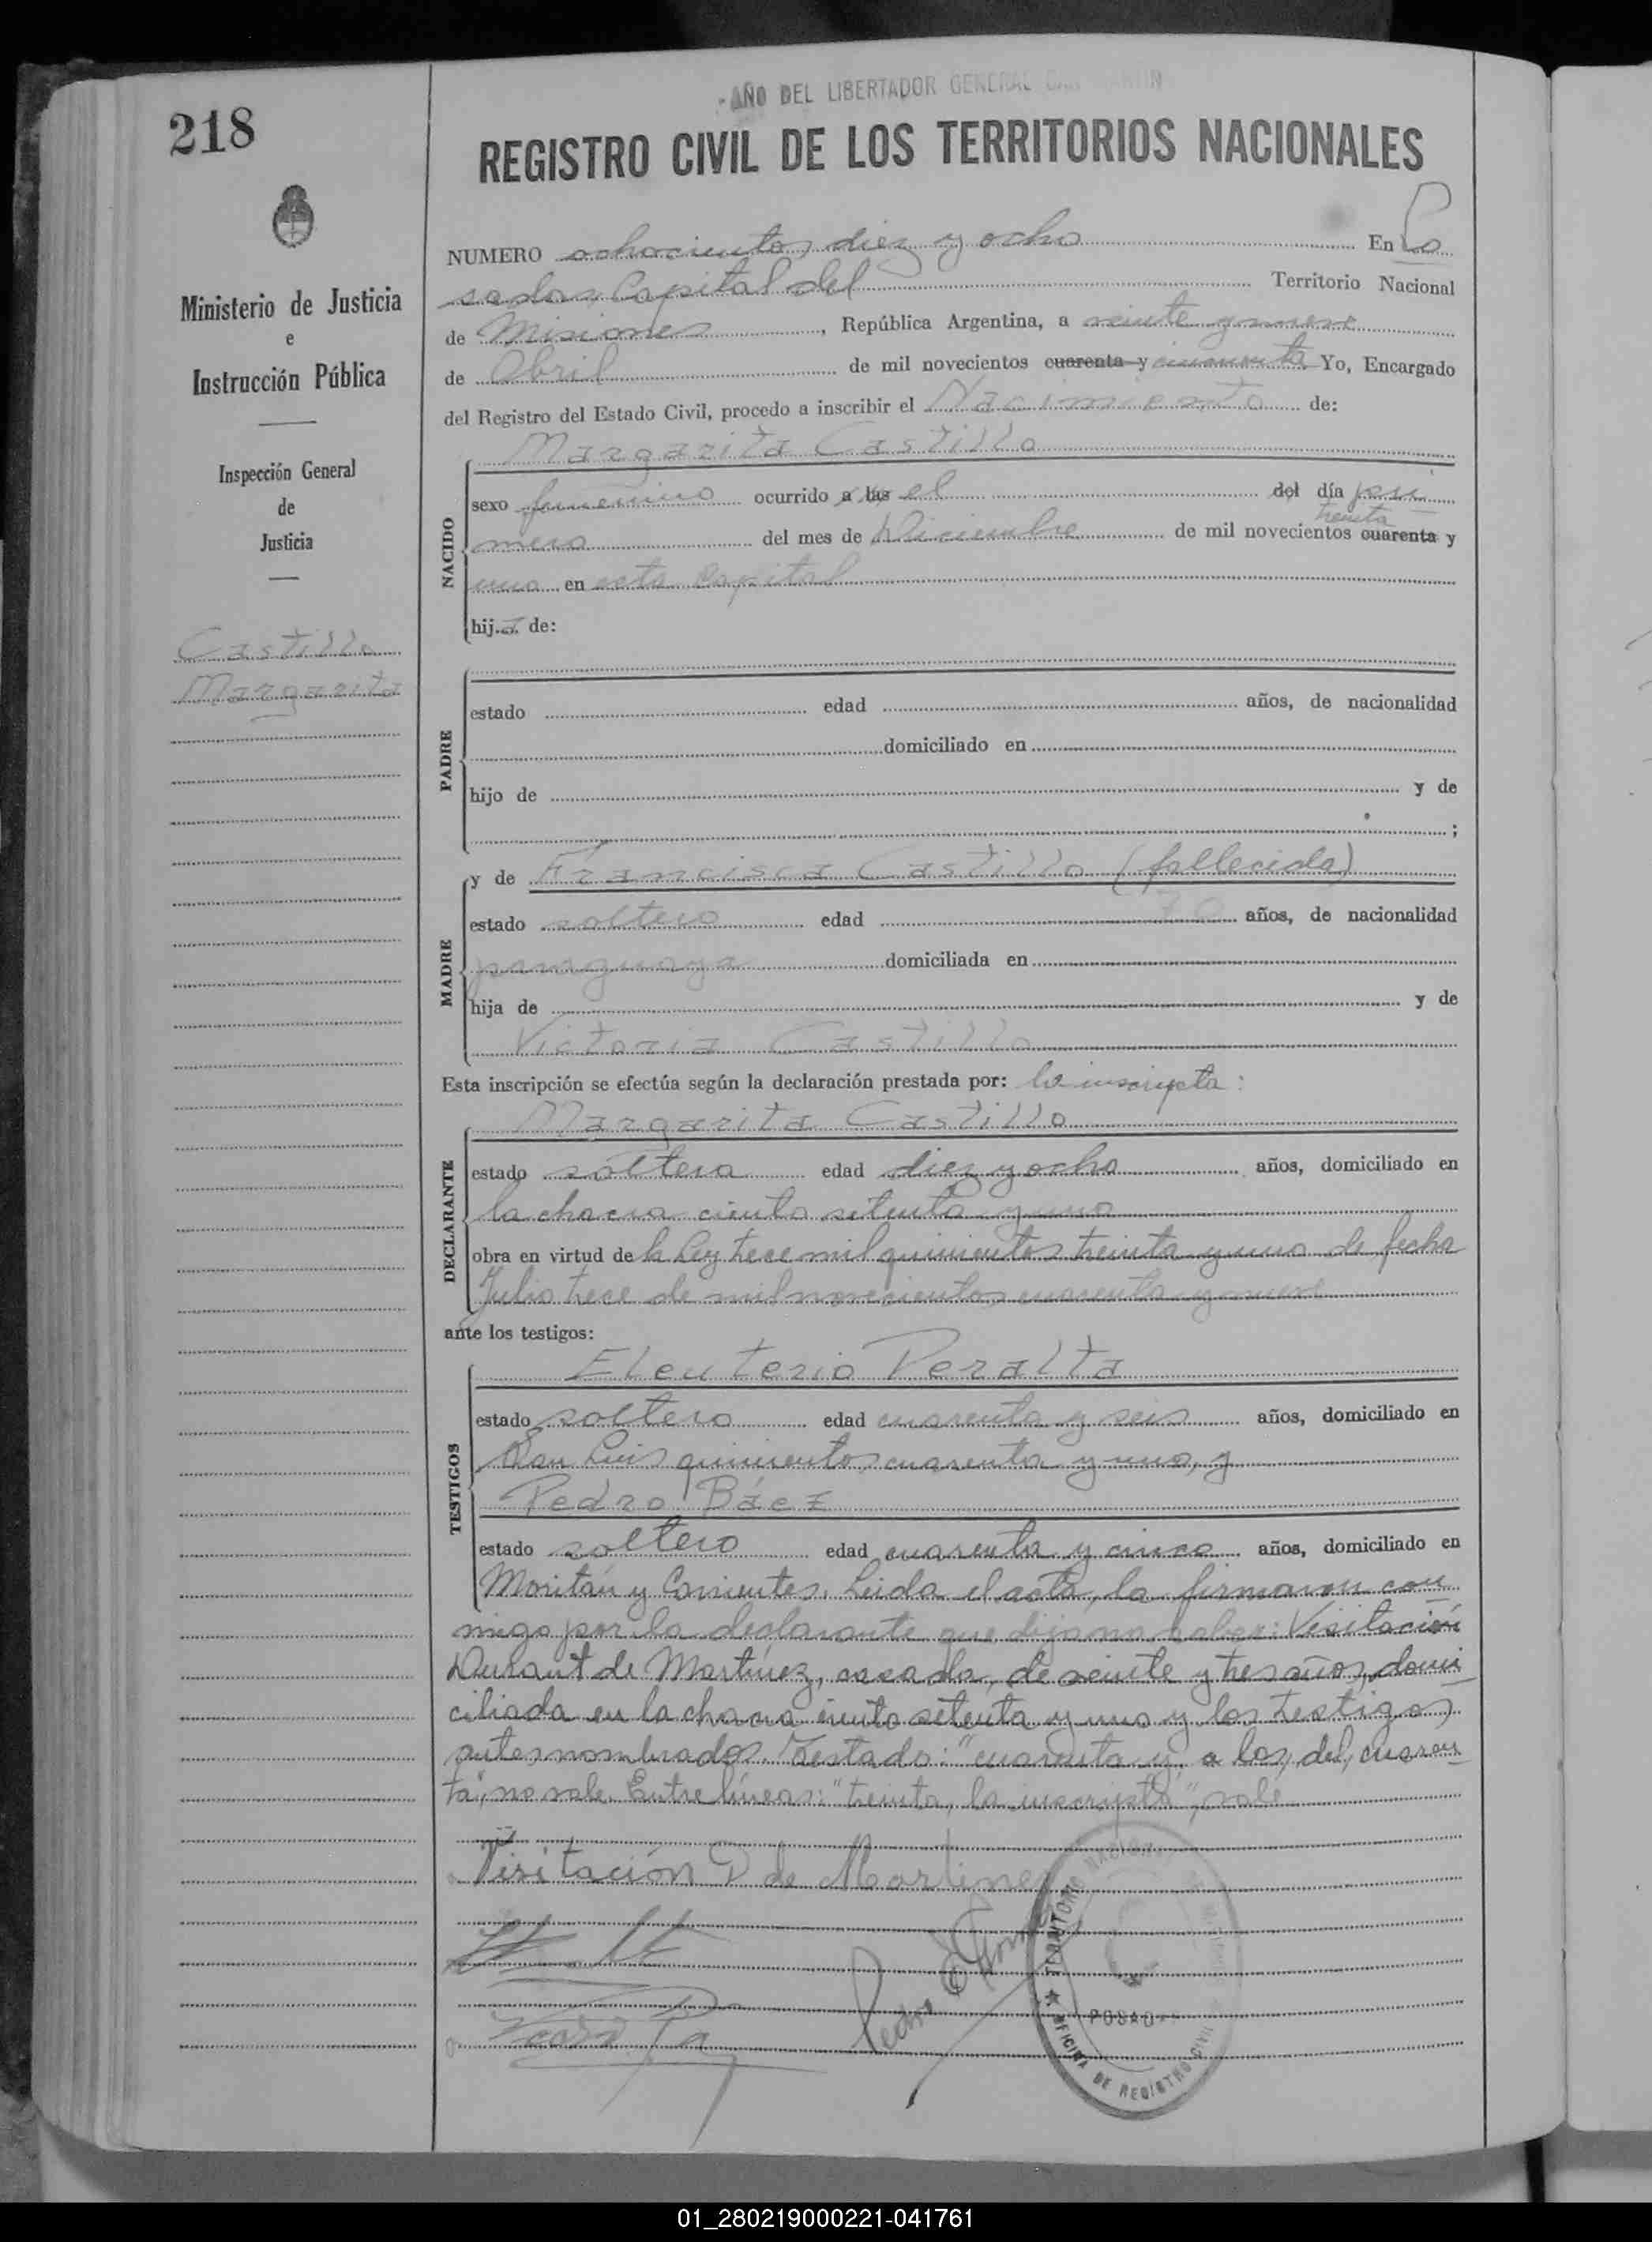 218
AÑO DEL LIBERTADOR GENERAL SAN MARTIN
REGISTRO CIVIL DE LOS TERRITORIOS NACIONALES
Ministerio de Justicia
e
Instrucción Pública
Inspección General
de
Justicia
Castillo
Margarita
NUMERO ochocientos diez y ocho En Po
sadas, Capital del Territorio Nacional
de Misiones, República Argentina, a veinte y nueve
de Abril de mil novecientos cuarenta y cincuenta Yo, Encargado
del Registro del Estado Civil, procedo a inscribir el Nacimiento de:
NACIDO
Margarita Castillo
sexo femenino ocurrido a las el del día pri
treinta
mero del mes de Diciembre de mil novecientos cuarenta y
uno en esta Capital
hija de:
PADRE
estado edad años, de nacionalidad
domiciliado en
hijo de y de
;
MADRE
y de Francisca Castillo (fallecida)
estado soltera edad años, de nacionalidad
paraguaya domiciliada en
hija de y de
Victoria Castillo
Esta inscripción se efectúa según la declaración prestada por: la inscripta:
DECLARANTE
Margarita Castillo
estado soltera edad diez y ocho años, domiciliado en
la chacra ciento setenta y uno
obra en virtud de la Ley trece mil quinientos treinta y uno de fecha
Julio trece de mil novecientos cuarenta y nueve
ante los testigos:
TESTIGOS
Eleuterio Peralta
estado soltero edad cuarenta y seis años, domiciliado en
San Luis quinientos cuarenta y uno, y
Pedro Báez
estado soltero edad cuarenta y cinco años, domiciliado en
Moritán y Corrientes. Leida el acta, la firmaron con
migo por la declarante que dijo no saber: Visitación
Durant de Martínez, casada, de veinte y tres años, domi
ciliada en la chacra ciento setenta y uno y los testigos
antes nombrados. Testado: "cuarenta y, a las, del, cuaren
ta", no vale. Entre líneas: "treinta, la inscripta", vale
Visitación D de Martinez
Pedro
TERRITORIO NACIONAL
POSADAS
OFICINA DE REGISTRO CIVIL
01_280219000221-041761